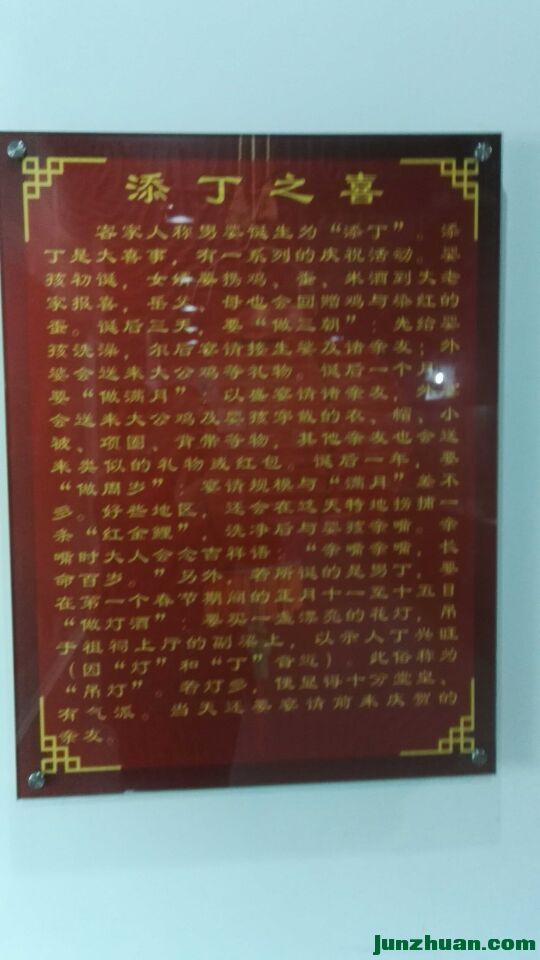 添丁之喜
客家人称男婴诞生为“添丁”。添
丁是大喜事，有一系列的庆祝活动。婴
孩初诞，女婿要携鸡、蛋、米酒到丈老
家报喜，岳父、母也会回赠鸡与染红的
蛋。诞后三天，要“做三朝”：先给婴
孩洗澡，尔后宴请接生婆及诸亲友；外
婆会送来大公鸡等礼物。诞后一个月，
要“做满月”：以盛宴请诸亲友，外
会送来大公鸡及婴孩穿戴的衣、帽、小
被、项圈、背带等物，其他亲友也会送
来类似的礼物或红包。诞后一年，要
“做周岁”，宴请规模与“满月”差不
多。好些地区，还会在这天特地捞捕一
条“红金鲤”，洗净后与婴孩亲嘴。亲
嘴时大人会念吉祥语：“亲嘴亲嘴，长
命百岁。”另外，若所诞的是男丁，要
在第一个春节期间的正月十一至十五日
“做灯酒”：要买一盏漂亮的花灯，吊
于祖祠上厅的副梁上，以示人丁兴旺
（因“灯”和“丁”音近）。此俗称为
“吊灯”。若灯多，便显得十分堂皇、
有气派。当天还要宴请前来庆贺的
亲友。
junzhuan.com